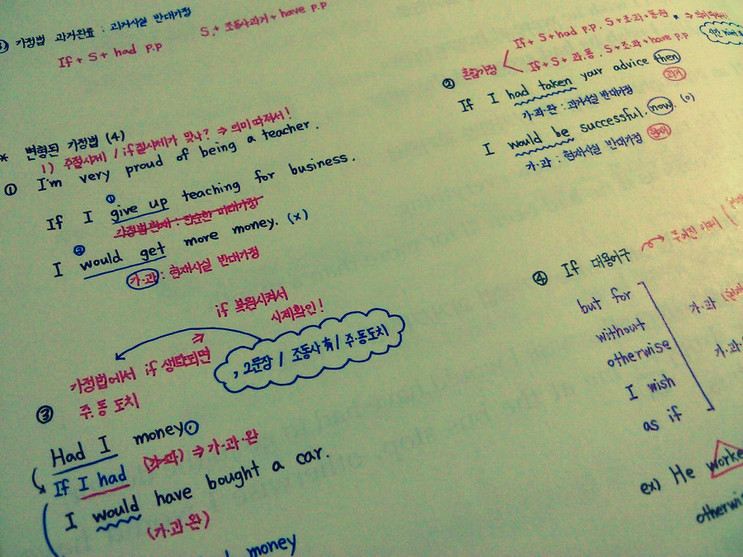 가정법 과거완료 : 과거사실 반대가정
If + S + had p.p
S + 조동사과거 + have p.p
* 변형된 가정법 (4)
1) 주절시제 / if절시제가 맞나? ⇒ 의미 따져서!
① I'm very proud of being a teacher.
①
If I give up teaching for business.
가정법현재 : 단순한 미래가정
②
I would get more money. (x)
가·과 : 현재사실 반대가정
if 복원시켜서
시제확인!
가정법에서 if 생략되면
주·동 도치
, 2문장 / 조동사 有 / 주·동도치
③
Had I money,
If I had (가·과) ⇒ 가·과·완
I would have bought a car.
(가·과·완)
money
② 혼합가정
If + S + had p.p. S + 조·과 + 동원
If + S + 과·동. S + 조·과 + have p.p
If I had taken your advice then
가·과·완 : 과거사실 반대가정 과거
I would be successful now. (o)
가·과 : 현재사실 반대가정 현재
④ If 대용어구
but for
without
otherwise
I wish
as if
가·과
가·과·
ex) He worke
otherwis